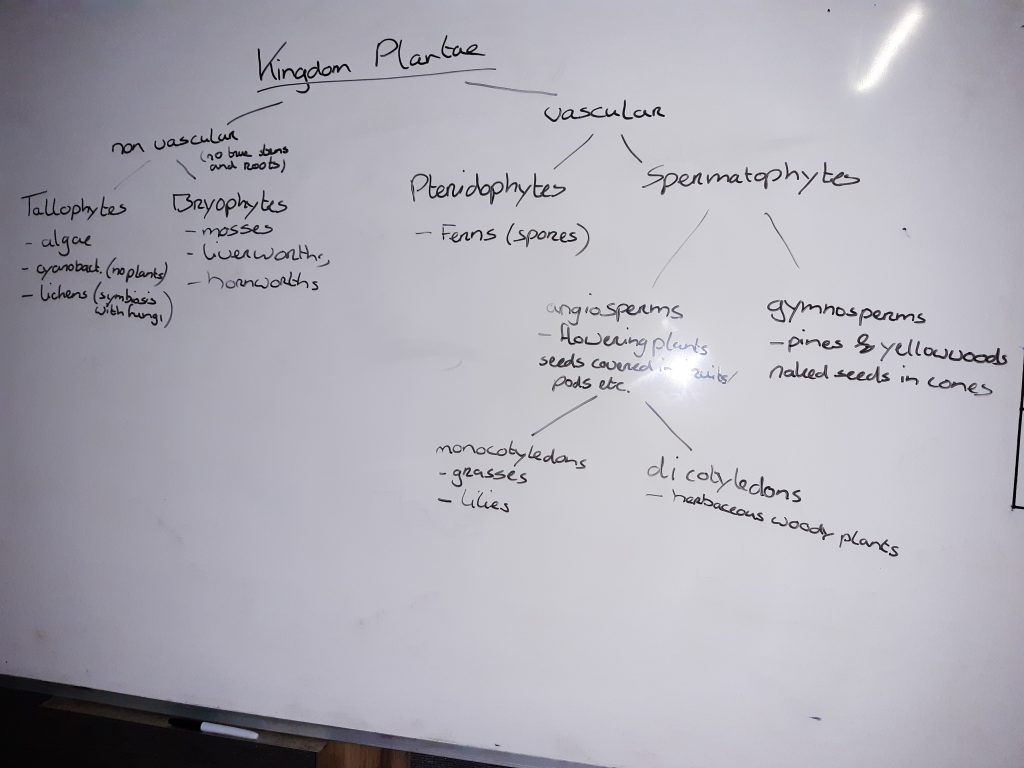 Kingdom Plantae
non vascular
(no true stems
and roots)
Tallophytes
- algae
- cyanobact. (no plants)
- lichens (symbiosis
with fungi)
Bryophytes
- mosses
- liverworths
- hornworths
vascular
Pteridophytes
- Ferns (spores)
Spermatophytes
angiosperms
- flowering plants
seeds covered in fruits/
pods etc.
gymnosperms
- pines & yellowwoods
naked seeds in cones
monocotyledons
- grasses
- lilies
dicotyledons
- herbaceous woody plants